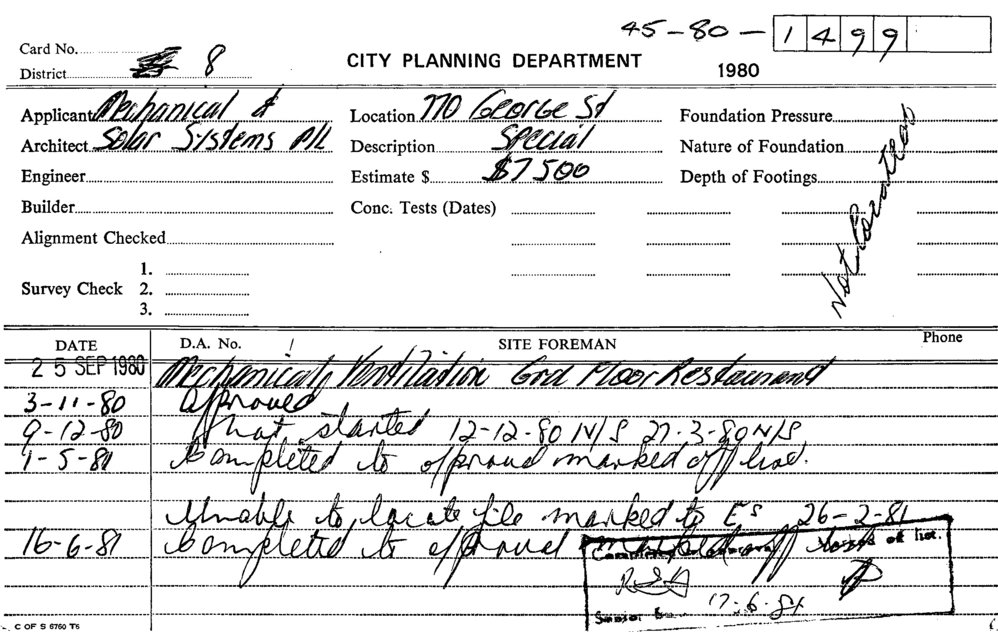 45-80-1499
Card No. 8
District
CITY PLANNING DEPARTMENT
1980
Applicant Mechanical &
Architect Solar Systems P/L
Engineer
Builder
Alignment Checked
Survey Check 1.
2.
3.
Location 770 George St
Description Special
Estimate $ $7500
Conc. Tests (Dates)
Foundation Pressure
Nature of Foundation
Depth of Footings
DATE D.A. No. SITE FOREMAN Phone
25 SEP 1980 Mechanical Ventilation Grd Floor Restaurant
3-11-80 Approved
9-12-80 Not started 12-12-80 N/S 27-3-80 N/S
1-5-81 Completed to approval marked off list.
Unable to locate file marked to Es 26-2-81
16-6-81 Completed to approval marked off
off list.
17-6-81
Senior
C OF S 6760 T6